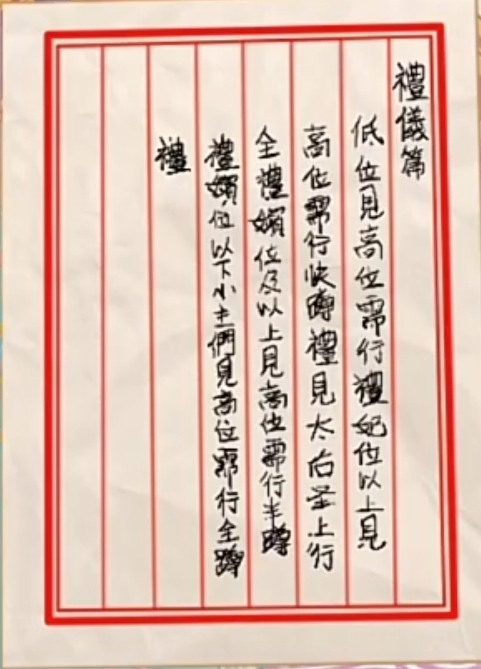 禮儀篇
低位見高位需行禮妃位以上見
高位需行快蹲禮見太后圣上行
全禮嬪位及以上見高位需行半蹲
禮嬪位以下小主們見高位需行全蹲
禮